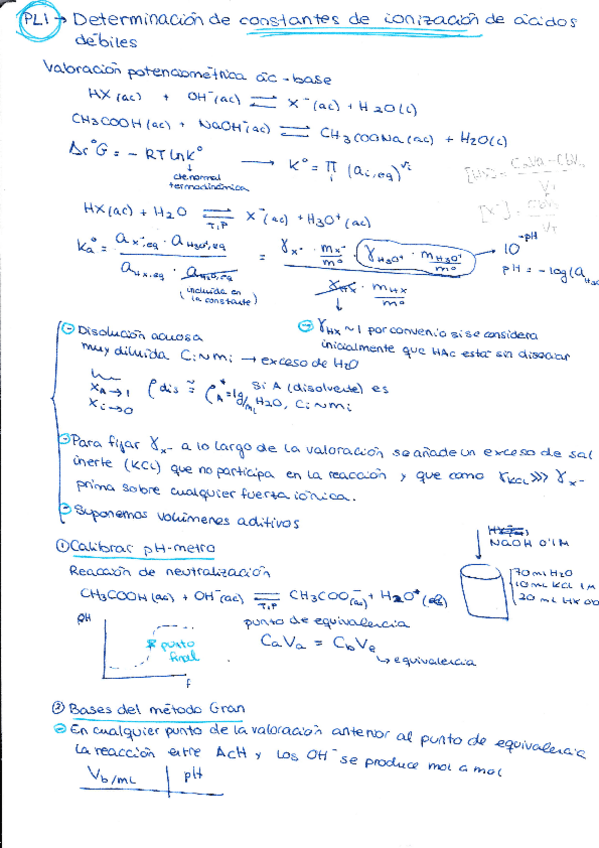 PL1 → Determinación de constantes de ionización de ácidos
débiles
Valoración potenciométrica ác-base
HX(ac) + OH⁻(ac) ⇌ X⁻(ac) + H2O(l)
CH3COOH(ac) + NaOH(ac) ⇌ CH3COONa(ac) + H2O(l)
ΔrG° = -RT ln K° → K° = Π (ai,eq)^νi
i
cte normal
termodinámica
[HX] = CaVa - CbVb / VT
[X⁻] = CbVb / VT
HX(ac) + H2O ⇌ X⁻(ac) + H3O⁺(ac)
T,P
Ka° = a X⁻,eq · a H3O⁺,eq / a HX,eq · a H2O,eq = γX⁻ · mX⁻/m° · γH3O⁺ · mH3O⁺/m° / γHX · mHX/m°
(incluida en
la constante)
10^-pH
pH = -log(a H3O
Disolución acuosa
muy diluida Ci~mi → exceso de H2O
XA→1
Xi→0
ρdis ≃ ρA* = 1g/mL si A (disolvente) es
H2O, Ci~mi
γHX ~ 1 por convenio si se considera
inicialmente que HAc está sin disociar
Para fijar γX⁻ a lo largo de la valoración se añade un exceso de sal
inerte (KCl) que no participa en la reacción y que como γKCl >>> γX⁻
prima sobre cualquier fuerza iónica.
Suponemos volúmenes aditivos
① Calibrar pH-metro
Reacción de neutralización
CH3COOH(ac) + OH⁻(ac) ⇌ CH3COO⁻(ac) + H2O
T,P
NaOH 0'1M
70 ml H2O
10 ml KCl 1M
20 ml HX
pH
punto
final
punto de equivalencia
CaVa = CbVe
↳ equivalencia
② Bases del método Gran
En cualquier punto de la valoración anterior al punto de equivalencia
la reacción entre AcH y los OH⁻ se produce mol a mol
Vb/mL | pH